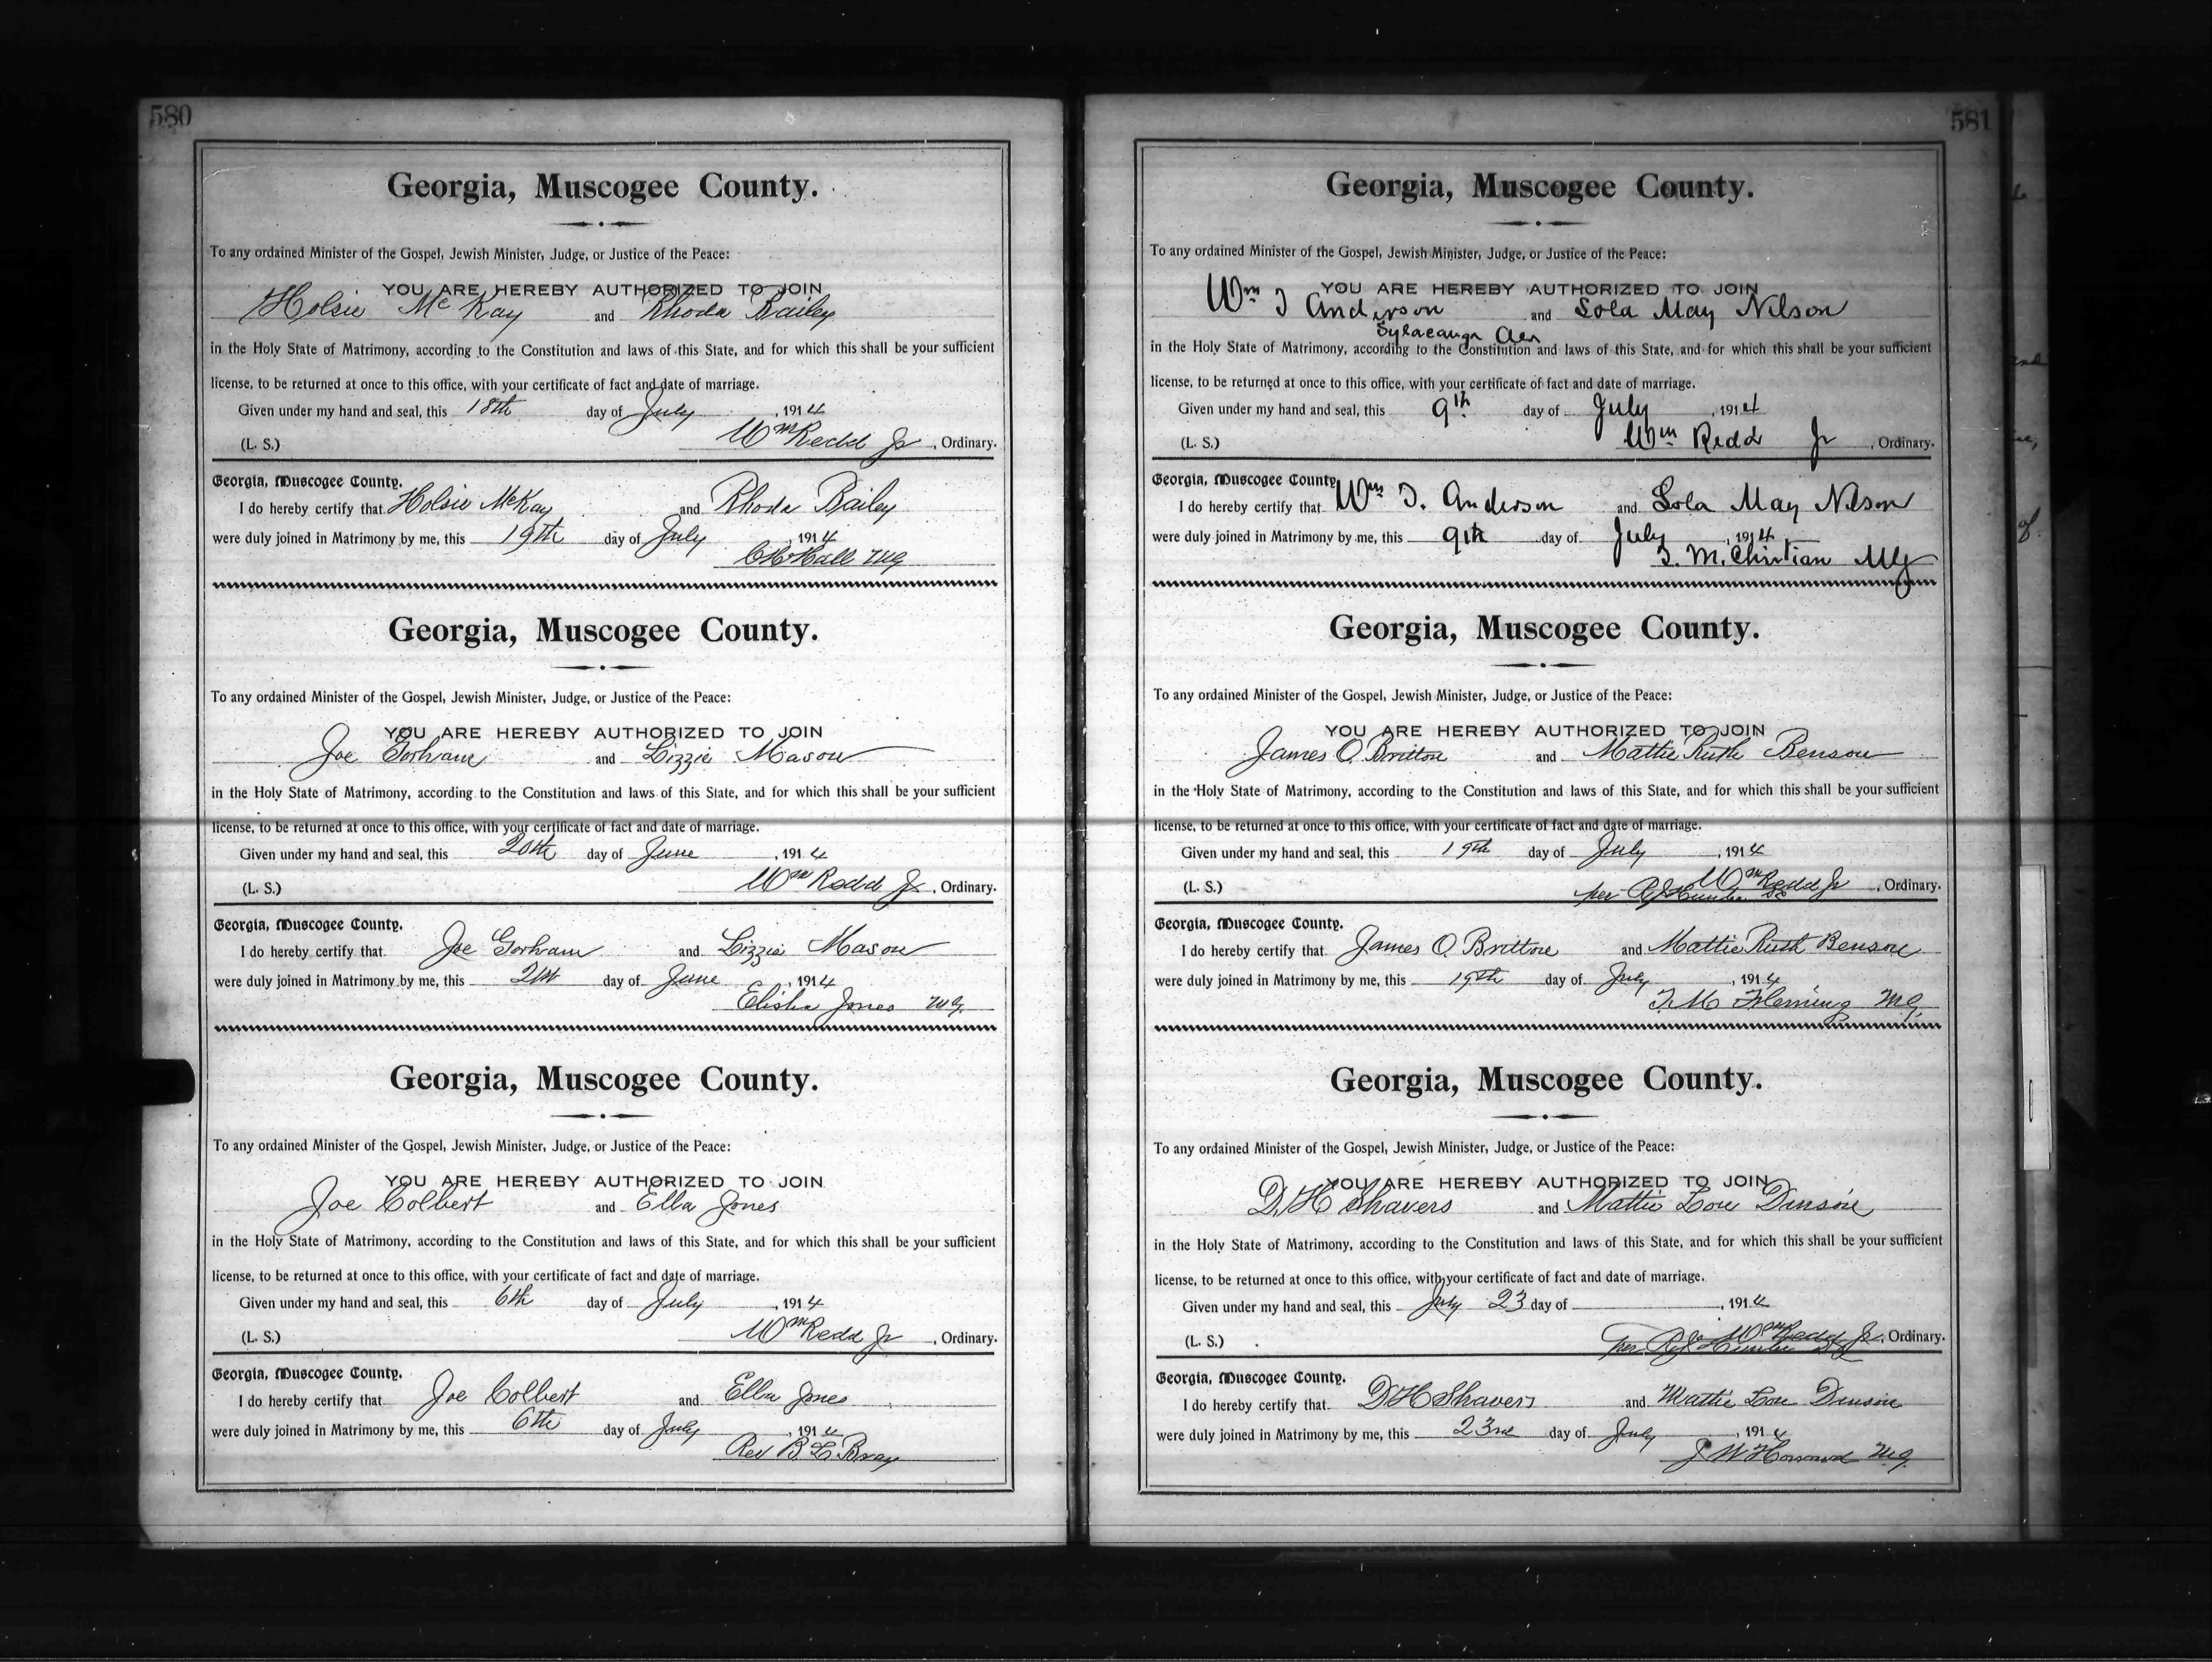 580
Georgia, Muscogee County.
To any ordained Minister of the Gospel, Jewish Minister, Judge, or Justice of the Peace:
YOU ARE HEREBY AUTHORIZED TO JOIN
Holsie McKay and Rhoda Bailey
in the Holy State of Matrimony, according to the Constitution and laws of this State, and for which this shall be your sufficient
license, to be returned at once to this office, with your certificate of fact and date of marriage.
Given under my hand and seal, this 18th day of July, 1914
Wm Redd Jr
(L. S.) , Ordinary.
Georgia, Muscogee County.
I do hereby certify that Holsie McKay and Rhoda Bailey
were duly joined in Matrimony by me, this 19th day of July, 1914
Hall MG
Georgia, Muscogee County.
To any ordained Minister of the Gospel, Jewish Minister, Judge, or Justice of the Peace:
YOU ARE HEREBY AUTHORIZED TO JOIN
Joe Gorham and Lizzie Mason
in the Holy State of Matrimony, according to the Constitution and laws of this State, and for which this shall be your sufficient
license, to be returned at once to this office, with your certificate of fact and date of marriage.
Given under my hand and seal, this 20th day of June, 1914
Wm Redd Jr
(L. S.) , Ordinary.
Georgia, Muscogee County.
I do hereby certify that Joe Gorham and Lizzie Mason
were duly joined in Matrimony by me, this 21st day of June, 1914
Elisha Jones MG.
Georgia, Muscogee County.
To any ordained Minister of the Gospel, Jewish Minister, Judge, or Justice of the Peace:
YOU ARE HEREBY AUTHORIZED TO JOIN
Joe Colbert and Ella Jones
in the Holy State of Matrimony, according to the Constitution and laws of this State, and for which this shall be your sufficient
license, to be returned at once to this office, with your certificate of fact and date of marriage.
Given under my hand and seal, this 6th day of July, 1914
Wm Redd Jr
(L. S.) , Ordinary.
Georgia, Muscogee County.
I do hereby certify that Joe Colbert and Ella Jones
were duly joined in Matrimony by me, this 6th day of July, 1914
Rev B. L. Bray
581
Georgia, Muscogee County.
To any ordained Minister of the Gospel, Jewish Minister, Judge, or Justice of the Peace:
YOU ARE HEREBY AUTHORIZED TO JOIN
Wm T Anderson and Lola May Nelson
Sylacauga Ala
in the Holy State of Matrimony, according to the Constitution and laws of this State, and for which this shall be your sufficient
license, to be returned at once to this office, with your certificate of fact and date of marriage.
Given under my hand and seal, this 9th day of July, 1914
Wm Redd Jr
(L. S.) , Ordinary.
Georgia, Muscogee County.
I do hereby certify that Wm T. Anderson and Lola May Nelson
were duly joined in Matrimony by me, this 9th day of July, 1914
T. M. Christian MG
Georgia, Muscogee County.
To any ordained Minister of the Gospel, Jewish Minister, Judge, or Justice of the Peace:
YOU ARE HEREBY AUTHORIZED TO JOIN
James O. Britton and Mattie Ruth Benson
in the Holy State of Matrimony, according to the Constitution and laws of this State, and for which this shall be your sufficient
license, to be returned at once to this office, with your certificate of fact and date of marriage.
Given under my hand and seal, this 19th day of July, 1914
Wm Redd Jr
(L. S.) per , Ordinary.
Georgia, Muscogee County.
I do hereby certify that James O. Britton and Mattie Ruth Benson
were duly joined in Matrimony by me, this 19th day of July, 1914
T. M Fleming MG.
Georgia, Muscogee County.
To any ordained Minister of the Gospel, Jewish Minister, Judge, or Justice of the Peace:
YOU ARE HEREBY AUTHORIZED TO JOIN
D. H Shavers and Mattie Lou Denson
in the Holy State of Matrimony, according to the Constitution and laws of this State, and for which this shall be your sufficient
license, to be returned at once to this office, with your certificate of fact and date of marriage.
Given under my hand and seal, this July 23 day of , 1914
Wm Redd Jr
(L. S.) per , Ordinary.
Georgia, Muscogee County.
I do hereby certify that D H Shavers and Mattie Lou Denson
were duly joined in Matrimony by me, this 23rd day of July, 1914
J W Howard MG.